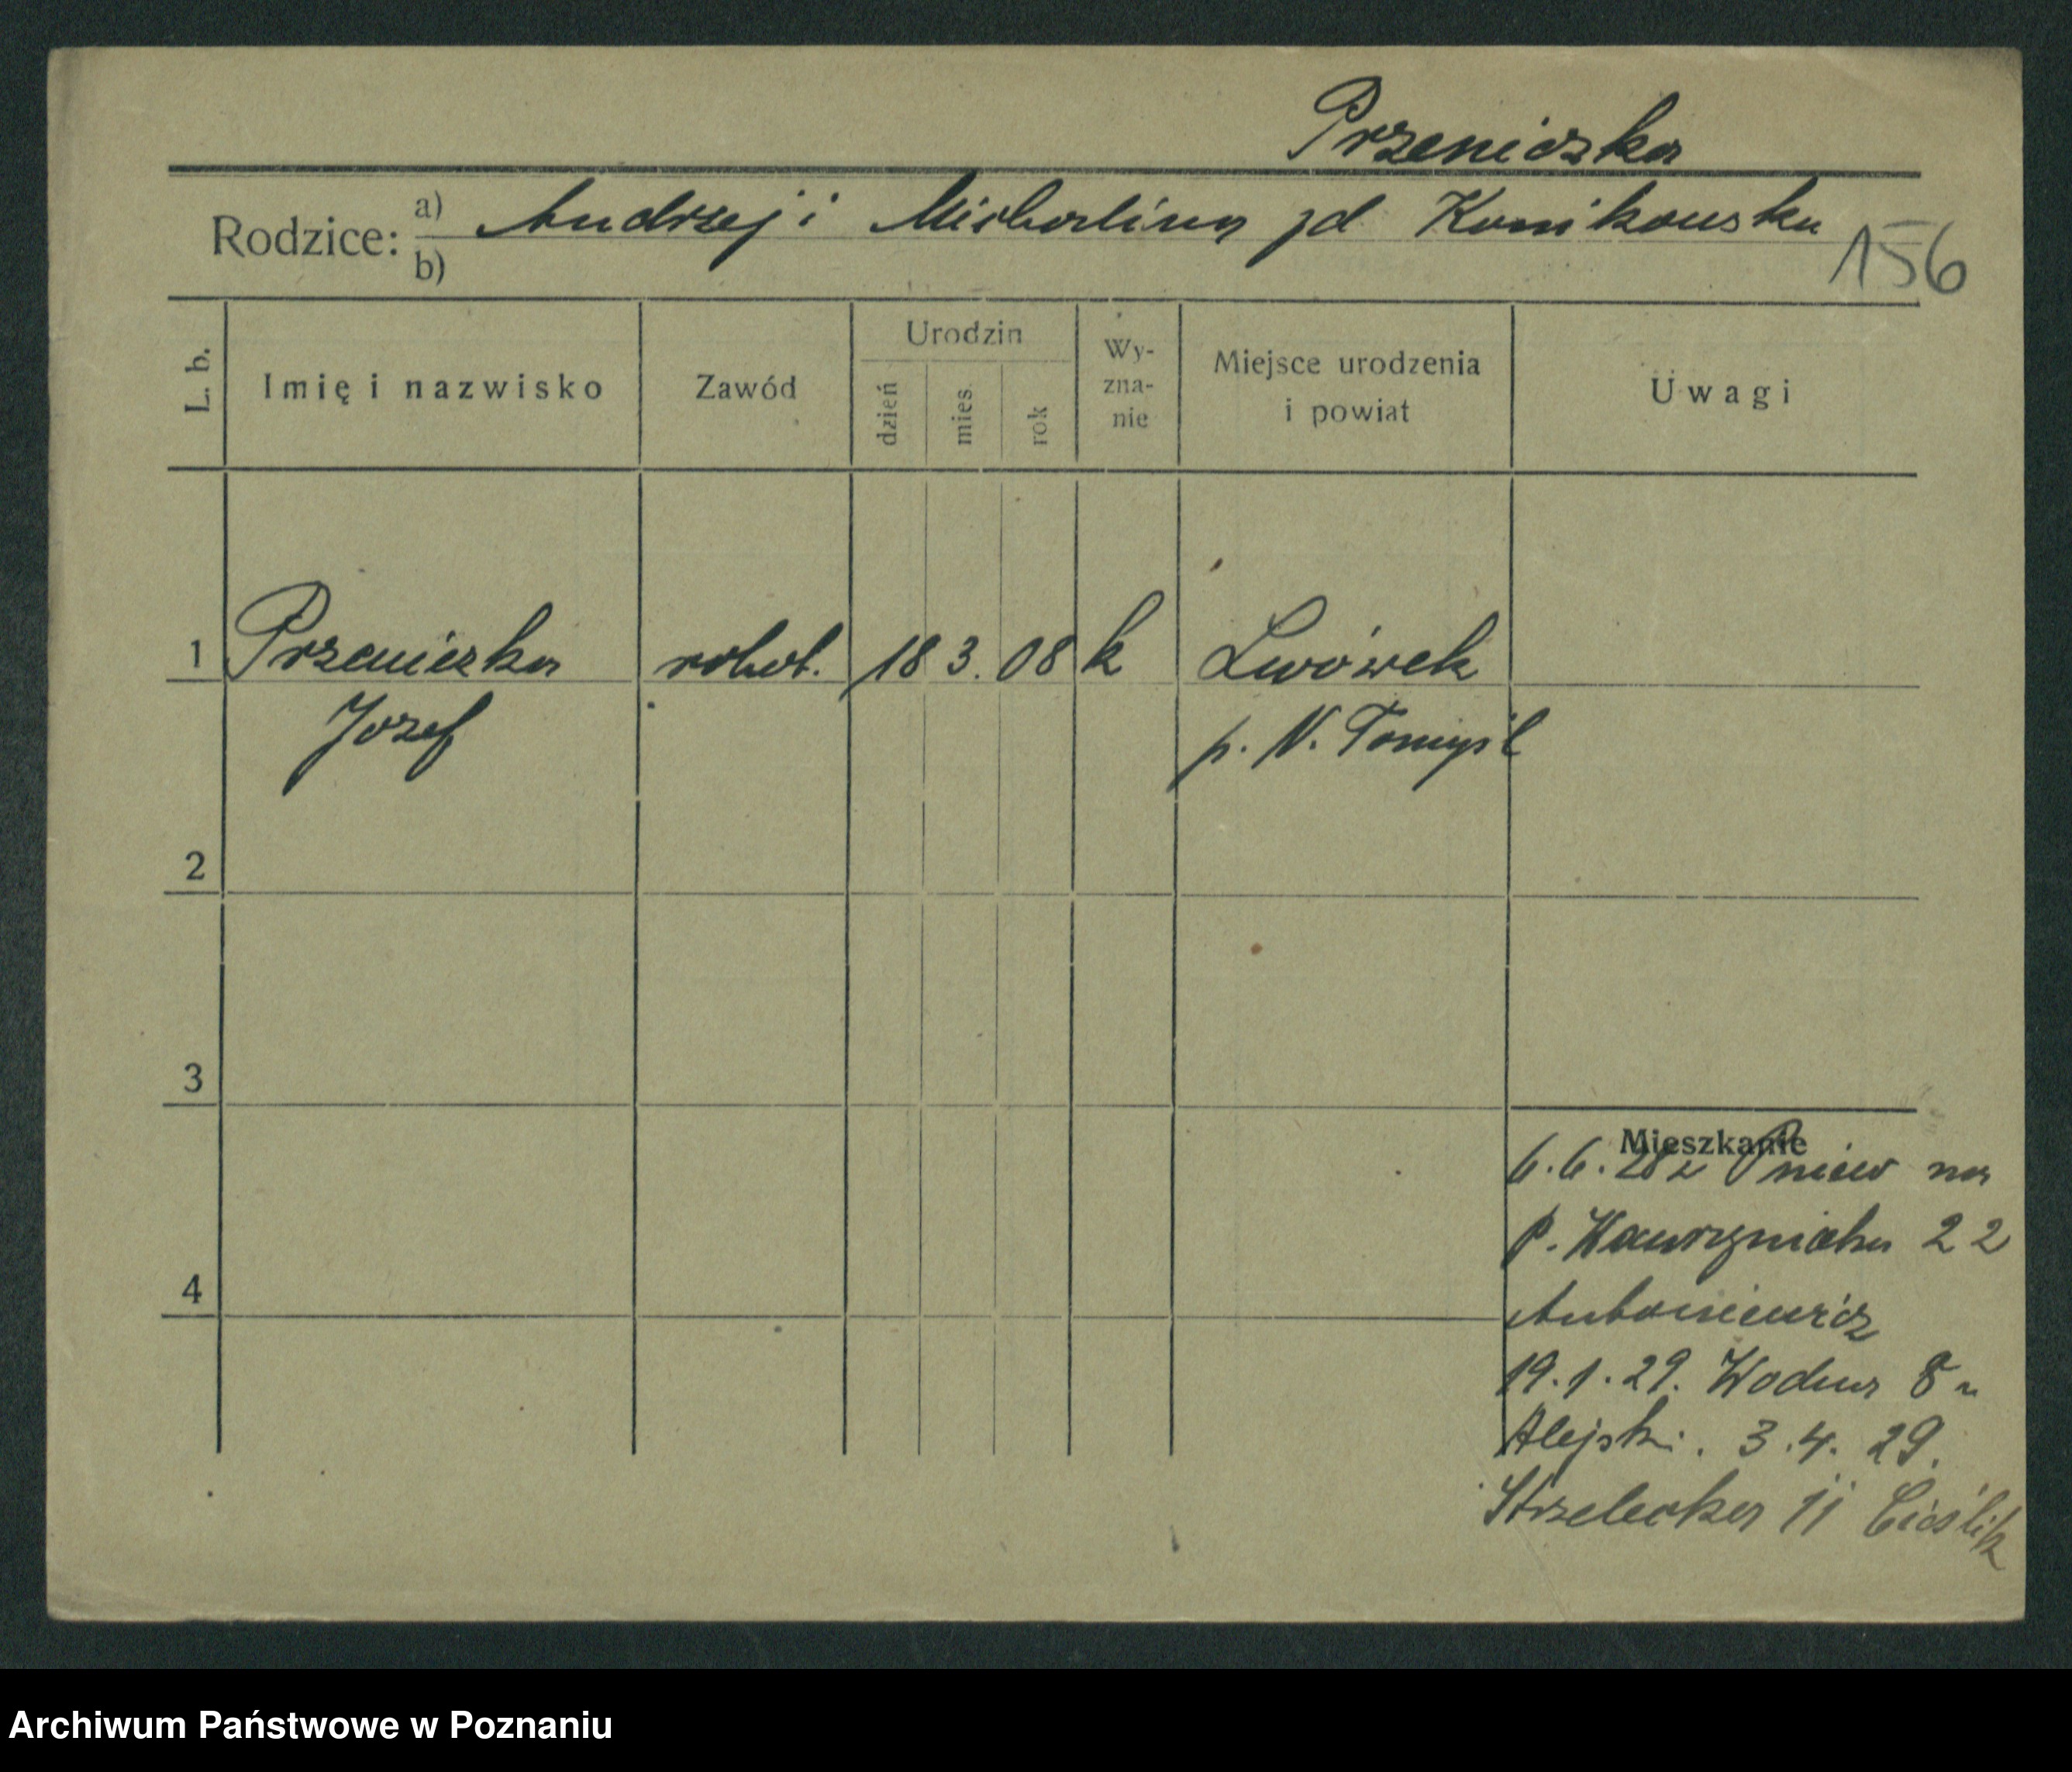 Przeniczka
Rodzice: a) Andrzej i Michalina zd Konikowska
b)
156
L. b. Imię i nazwisko Zawód Urodzin dzień mies. rok Wy-zna-nie Miejsce urodzenia i powiat Uwagi
1 Przeniczka robot. 18 3. 08 k Lwówek
Józef p. N. Tomyśl
2
3
Mieszkanie
6.6.28 z Pniew na
P. Wawrzyniaka 22
4
Antoniewicz
19.1.29. Wodna 8 u
Alejski. 3.4.29.
Strzelecka 11 Cieślik
Archiwum Państwowe w Poznaniu